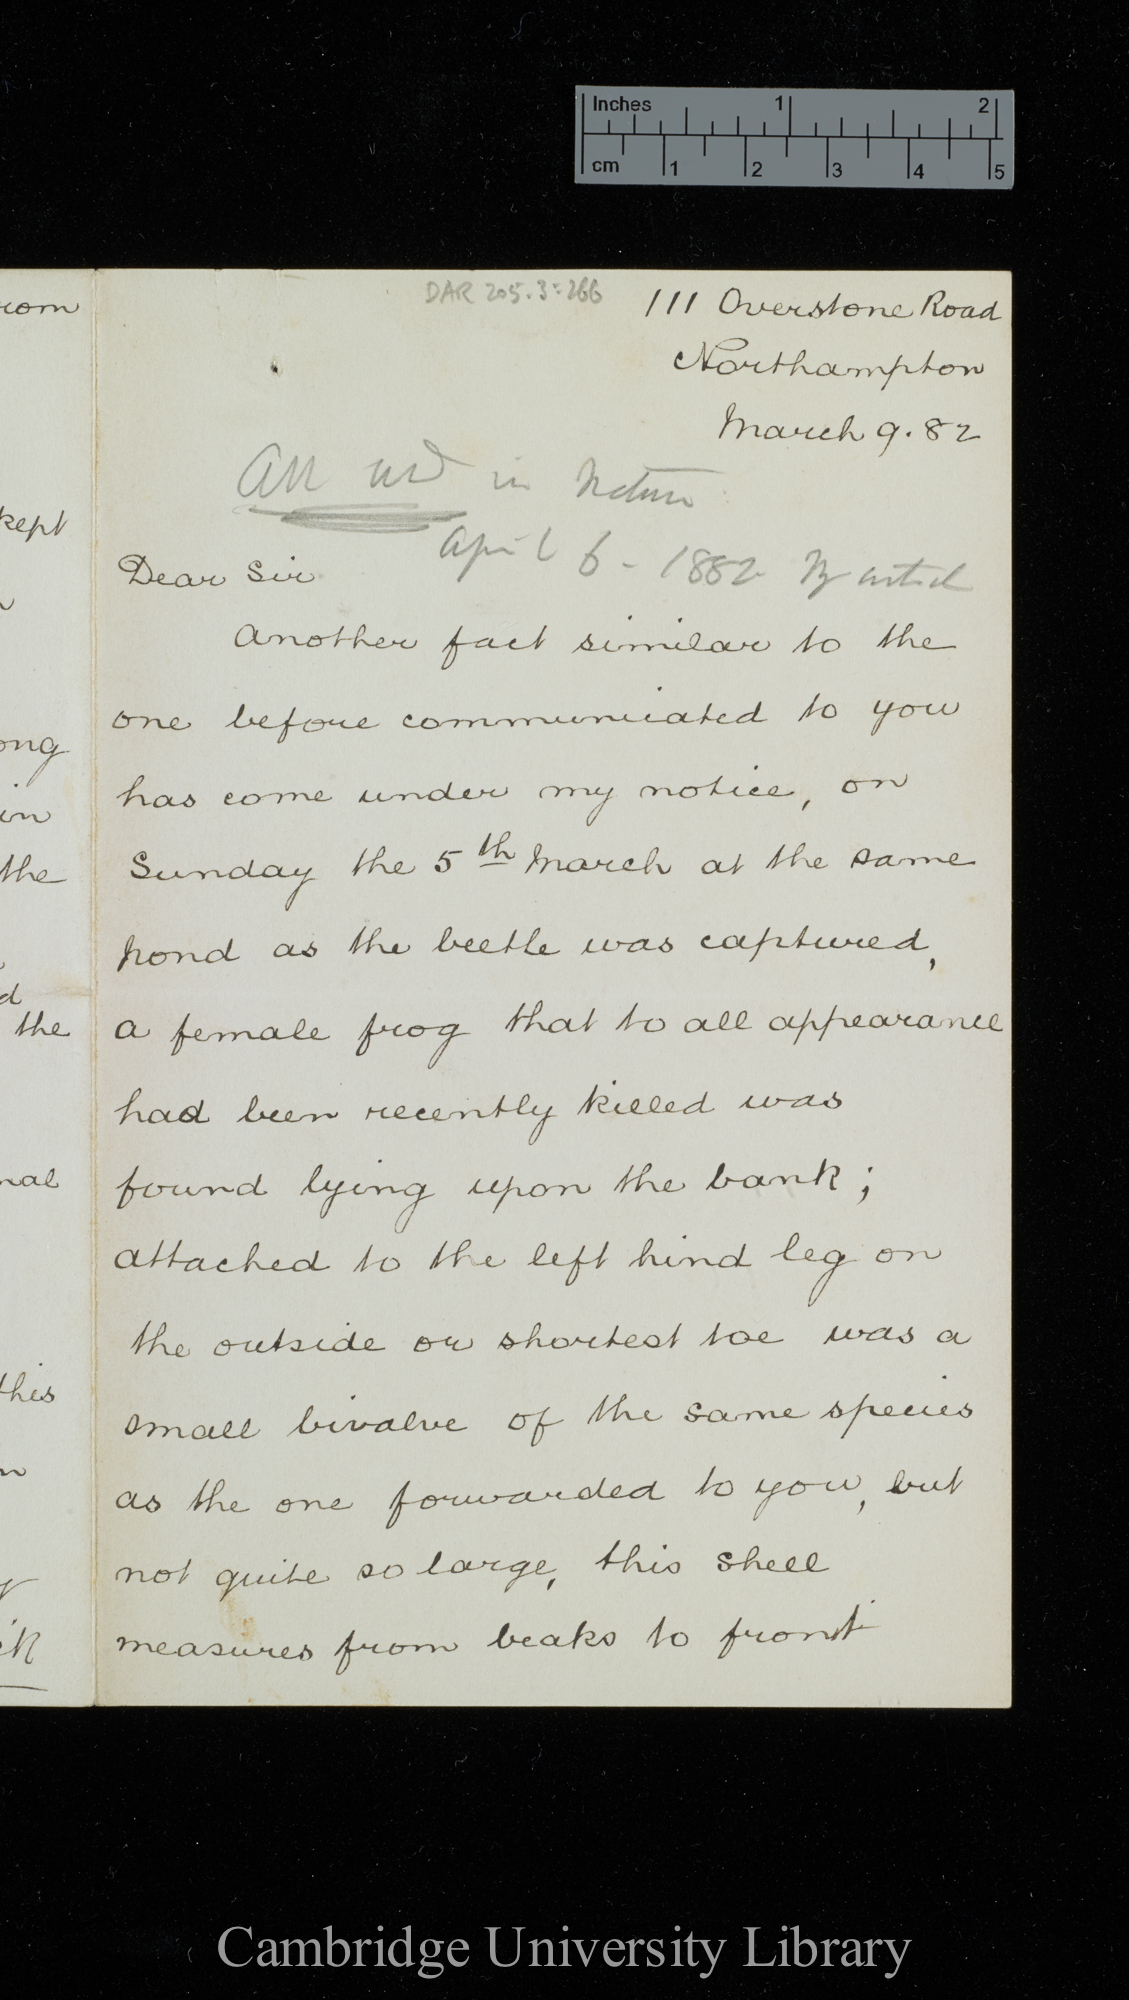 Inches 1 2
cm 1 2 3 4 5
DAR 205.3:266
111 Overstone Road
Northampton
March 9. 82
All used in Nature
April 6 - 1882 My article
Dear Sir
Another fact similar to the
one before communicated to you
has come under my notice, on
Sunday the 5th March at the same
pond as the beetle was captured,
a female frog that to all appearance
had been recently killed was
found lying upon the bank;
attached to the left hind leg on
the outside or shortest toe was a
small bivalve of the same species
as the one forwarded to you, but
not quite so large, this shell
measures from beaks to front
kept
the
the
this
Cambridge University Library